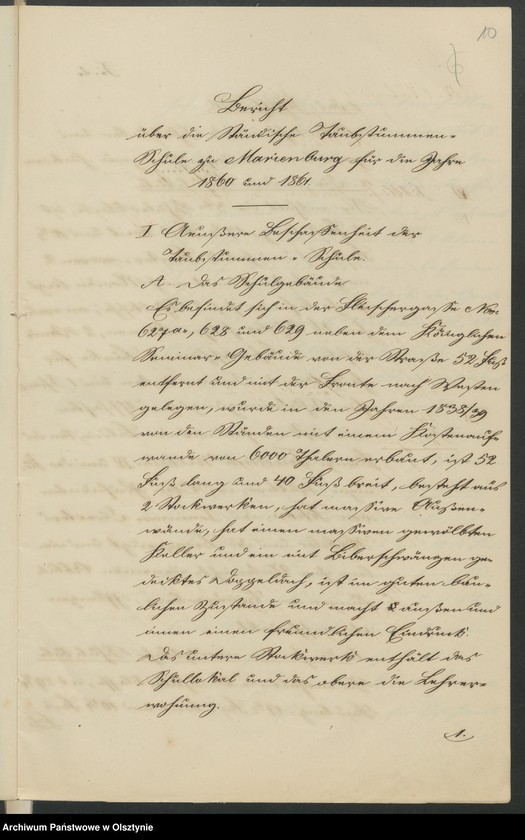 10
Bericht
über die Ständische Taubstummen-
Schule zu Marienburg für die Jahre
1860 und 1861.
I Aeußere Beschaffenheit der
Taubstummen-Schule.
A. Das Schulgebäude
Es befindet sich in der Fleischergasse Nro
627a, 628 und 629 neben dem Königlichen
Seminar-Gebäude von der Straße 52 Fuß
entfernt und mit der Fronte nach Westen
gelegen, wurde in den Jahren 1838/39
von den Ständen mit einem Kostenauf-
wande von 6000 Thalern erbaut, ist 52
Fuß lang und 40 Fuß breit, besteht aus
2 Stockwerken, hat massive Außen-
wände, hat einen massiven gewölbten
Keller und ein mit Biberschwänzen ge-
decktes Doppeldach, ist im guten bau-
lichen Zustande und macht außen und
innen einen freundlichen Eindruck.
Das untere Stockwerk enthält das
Schullokal und das obere die Lehrer-
wohnung.
1.
Archiwum Państwowe w Olsztynie